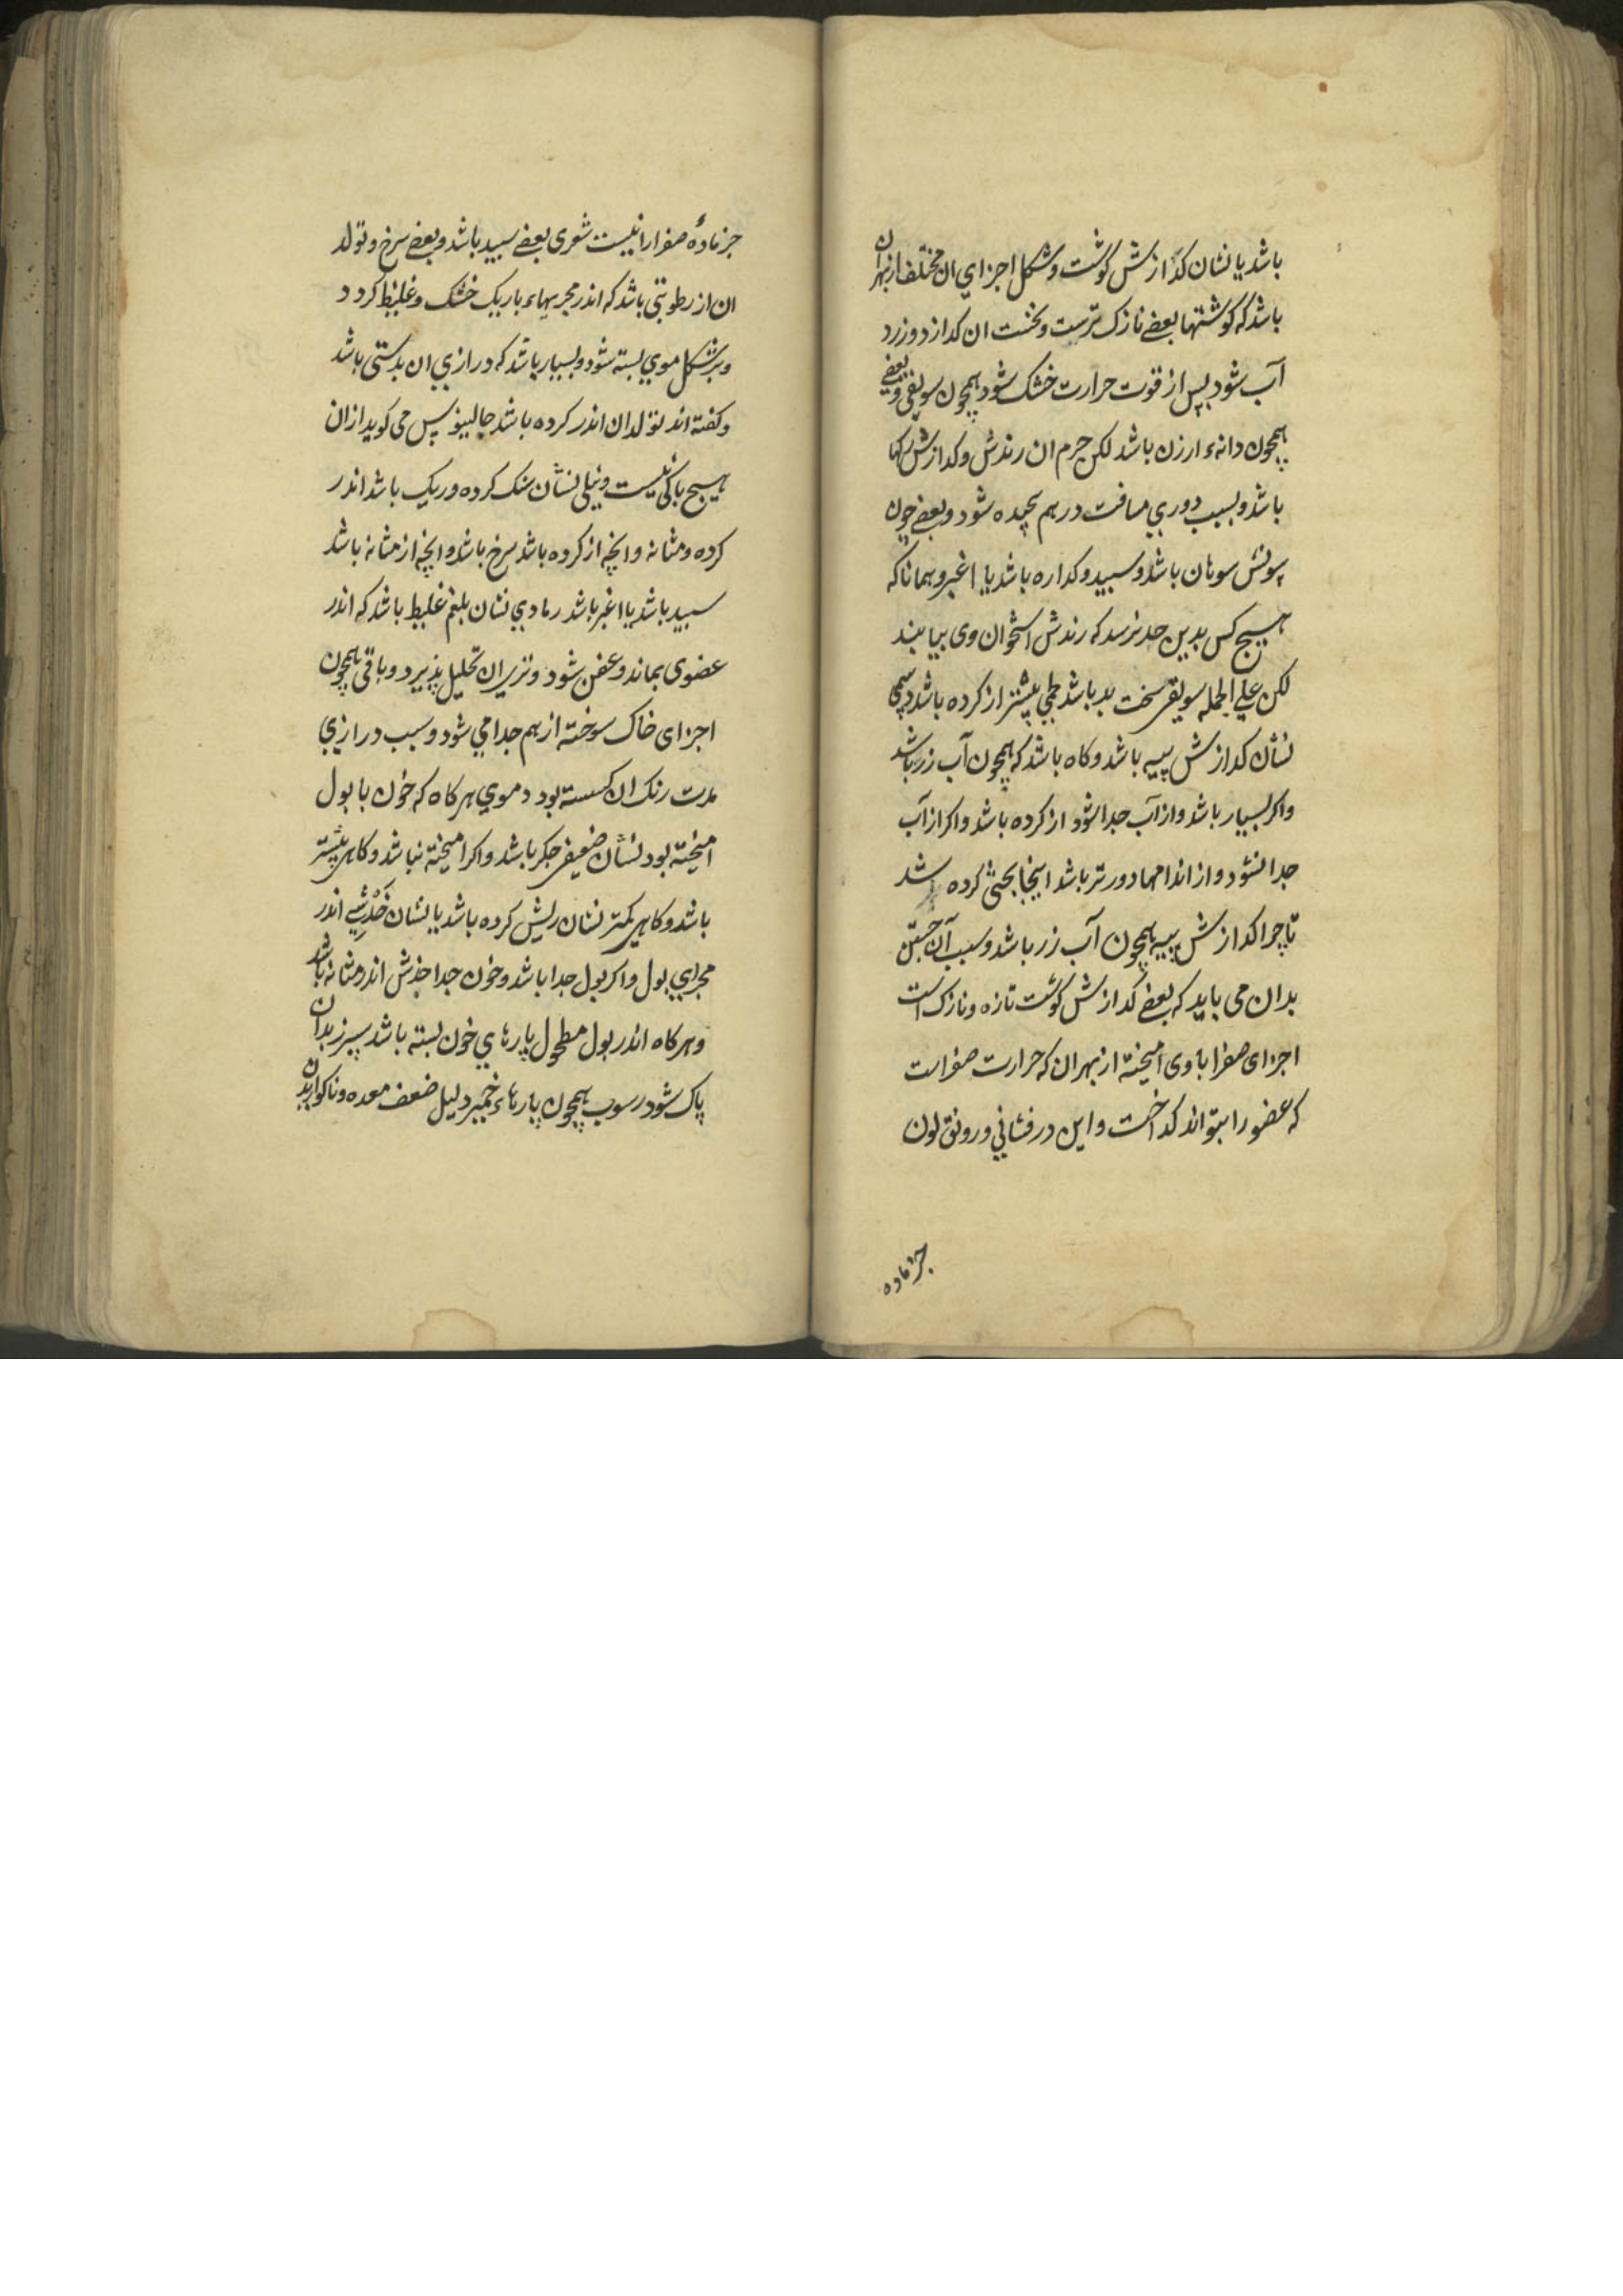 باشد یا نشان کدازش کوشت و شکل اجزاي ان مختلف از بهر ان
باشد که کوشتها بعضے نازک ترست و نخست ان کدازد و زرد
آب شود پس از قوت حرارت خشک شود همچون سویقی و بعضے
همچون دانهء ارزن باشد لکن جرم ان رندش و کدازش رکها
باشد و بسبب دوري مسافت در هم پیچیده شود و بعضے چون
سونش سوهان باشد و سپید و کداره باشد یا اغبر و همانا که
هیچ کس بدین حد نرسد که رندش استخوان وی بیابند
لکن علي الجمله سویقی سخت بد باشد لحمي بیشتر از کرده باشد دسمي
نشان کدازش پیه باشد و کاه باشد که همچون آب زر باشد
و اکر بسیار باشد و از آب جدا شود از کرده باشد و اکر از آب
جدا نشود و از اندامها دورتر باشد اینجا بحثی کرده شد
تا چرا کدازش پیه همچون آب زر باشد و سبب آن جستن
بدان می باید که بعضے کدازش کوشت تازه و نازک است
اجزای صفرا با وی امیخته از بهر ان که حرارت صفراست
که عضو را بتواند کداخت و این درفشاني و رونق لون
جز ماده
جز مادهٔ صفرا را نیست شعری بعضے سپید باشد و بعضے سرخ و تولد
ان از رطوبتی باشد که اندر مجریهاء باریک خشک و غلیظ کردد
و بر شکل موي بسته شود و بسیار باشد که درازي ان بدستی باشد
و کفته اند تولد ان اندر کرده باشد جالینوس می کوید ازان
هیچ باکی نیست و نیلی نشان سنک کرده و ریک باشد اندر
کرده و مثانه و انچه از کرده باشد سرخ باشد و انچه از مثانه باشد
سپید باشد یا اغبر باشد رمادي نشان بلغم غلیظ باشد که اندر
عضوی بماند و عفن شود و تري ان تحلیل پذیرد و باقی همچون
اجزای خاک سوخته از هم جدا می شود و سبب درازي
مدت رنک ان کسسته بود دموي هر کاه که خون با بول
امیخته بود نشان ضعیفی جکر باشد و اکر امیخته نباشد و کاهی بیشتر
باشد و کاهی کمتر نشان ریش کرده باشد یا نشان خَدْشے اندر
مجراي بول و اکر بول جدا باشد و خون جدا خدش اندر مثانه باشد
و هر کاه اندر بول مطحول پارهاي خون بسته باشد سپرز بدان
پاک شود رسوب همچون پارهاء خمیر دلیل ضعف معده و ناکواریدن